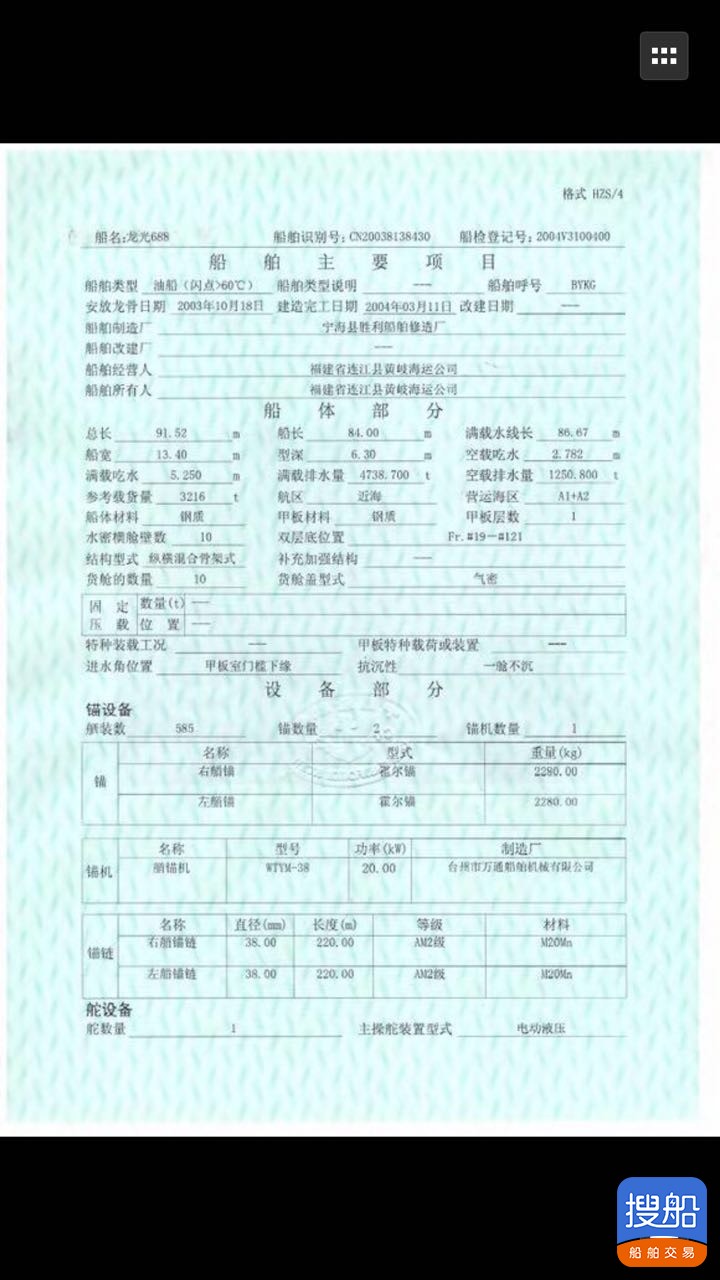 格式 HZS/4
船名:龙光688 船舶识别号:CN20038138430 船检登记号:2004V3100400
船 舶 主 要 项 目
船舶类型 油船(闪点>60℃) 船舶类型说明 --- 船舶呼号 BYKG
安放龙骨日期 2003年10月18日 建造完工日期 2004年03月11日 改建日期 ---
船舶制造厂 宁海县胜利船舶修造厂
船舶改建厂 ---
船舶经营人 福建省连江县黄岐海运公司
船舶所有人 福建省连江县黄岐海运公司
船 体 部 分
总长 91.52 m 船长 84.00 m 满载水线长 86.67 m
船宽 13.40 m 型深 6.30 m 空载吃水 2.782 m
满载吃水 5.250 m 满载排水量 4738.700 t 空载排水量 1250.800 t
参考载货量 3216 t 航区 近海 营运海区 A1+A2
船体材料 钢质 甲板材料 钢质 甲板层数 1
水密横舱壁数 10 双层底位置 Fr.#19-#121
结构型式 纵横混合骨架式 补充加强结构 ---
货舱的数量 10 货舱盖型式 气密
固 定 数量(t) ---
压 载 位 置 ---
特种装载工况 --- 甲板特种载荷或装置 ---
进水角位置 甲板室门槛下缘 抗沉性 一舱不沉
设 备 部 分
锚设备
舾装数 585 锚数量 2 锚机数量 1
名称 型式 重量(kg)
锚
右艏锚 霍尔锚 2280.00
左艏锚 霍尔锚 2280.00
名称 型号 功率(kW) 制造厂
锚机 艏锚机 WTYM-38 20.00 台州市万通船舶机械有限公司
名称 直径(mm) 长度(m) 等级 材料
锚链
右艏锚链 38.00 220.00 AM2级 M20Mn
左艏锚链 38.00 220.00 AM2级 M20Mn
舵设备
舵数量 1 主操舵装置型式 电动液压
搜船
船舶交易